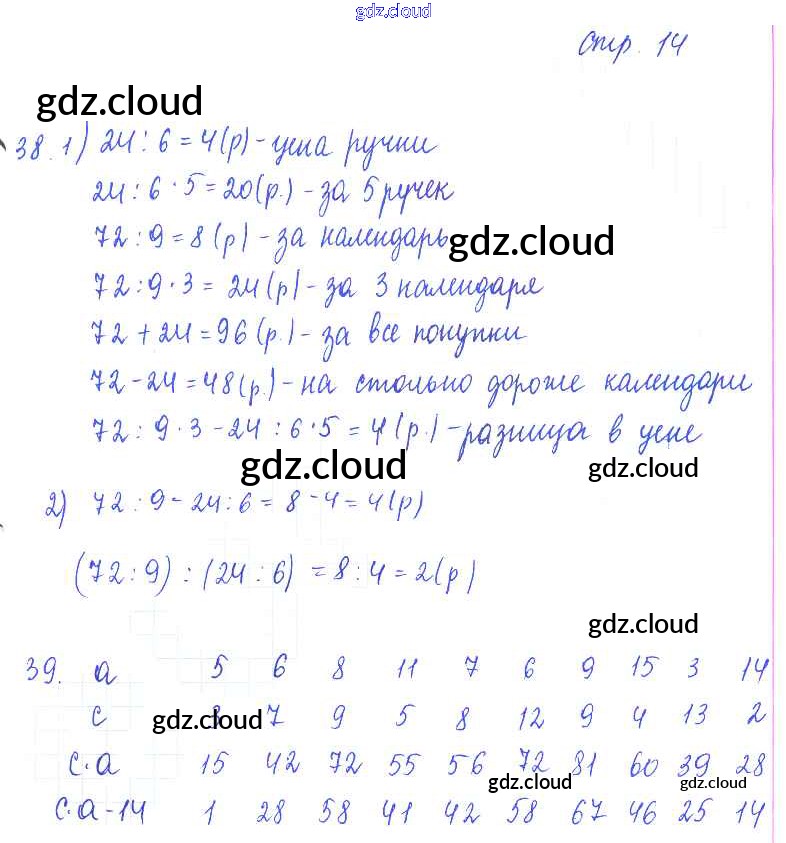 gdz.cloud
стр. 14
gdz.cloud
38. 1) 24 : 6 = 4(р) - цена ручки
24 : 6 · 5 = 20(р.) - за 5 ручек
72 : 9 = 8 (р) - за календарь gdz.cloud
72 : 9 · 3 = 24(р) - за 3 календаря
72 + 24 = 96 (р.) - за все покупки
72 - 24 = 48(р.) - на столько дороже календари
72 : 9 · 3 - 24 : 6 · 5 = 4 (р.) - разница в цене
gdz.cloud gdz.cloud
2) 72 : 9 - 24 : 6 = 8 - 4 = 4(р)
(72 : 9) : (24 : 6) = 8 : 4 = 2(р)
gdz.cloud
39. а 5 6 8 11 7 6 9 15 3 14
с gdz.cloud 3 7 9 5 8 12 9 4 13 2
с·а 15 42 72 55 56 72 81 60 39 28
gdz.cloud gdz.cloud
с·а - 14 1 28 58 41 42 58 67 46 25 14